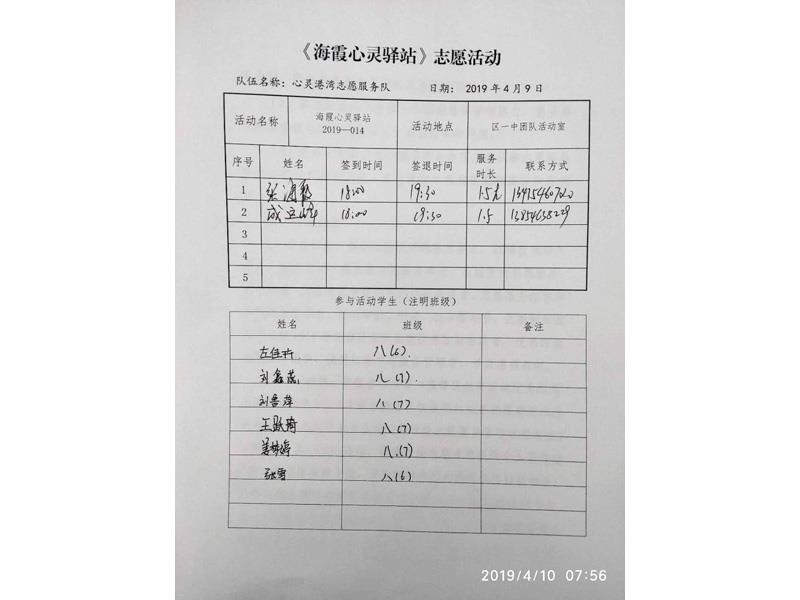 《海霞心灵驿站》志愿活动
队伍名称：心灵港湾志愿服务队 日期：2019年4月9日
活动名称 海霞心灵驿站 2019—014 活动地点 区一中团队活动室
序号 姓名 签到时间 签退时间 服务时长 联系方式
1 张海霞 18:00 19:30 1.5
2 成立峰 18:00 19:30 1.5
3
4
5
参与活动学生（注明班级）
姓名 班级 备注
左佳卉 八(6).
刘鑫蕊 八(7).
刘鲁萍 八(7)
王跃琦 八(7)
姜梦婷 八.(7)
张雪 八(6)
2019/4/10 07:56